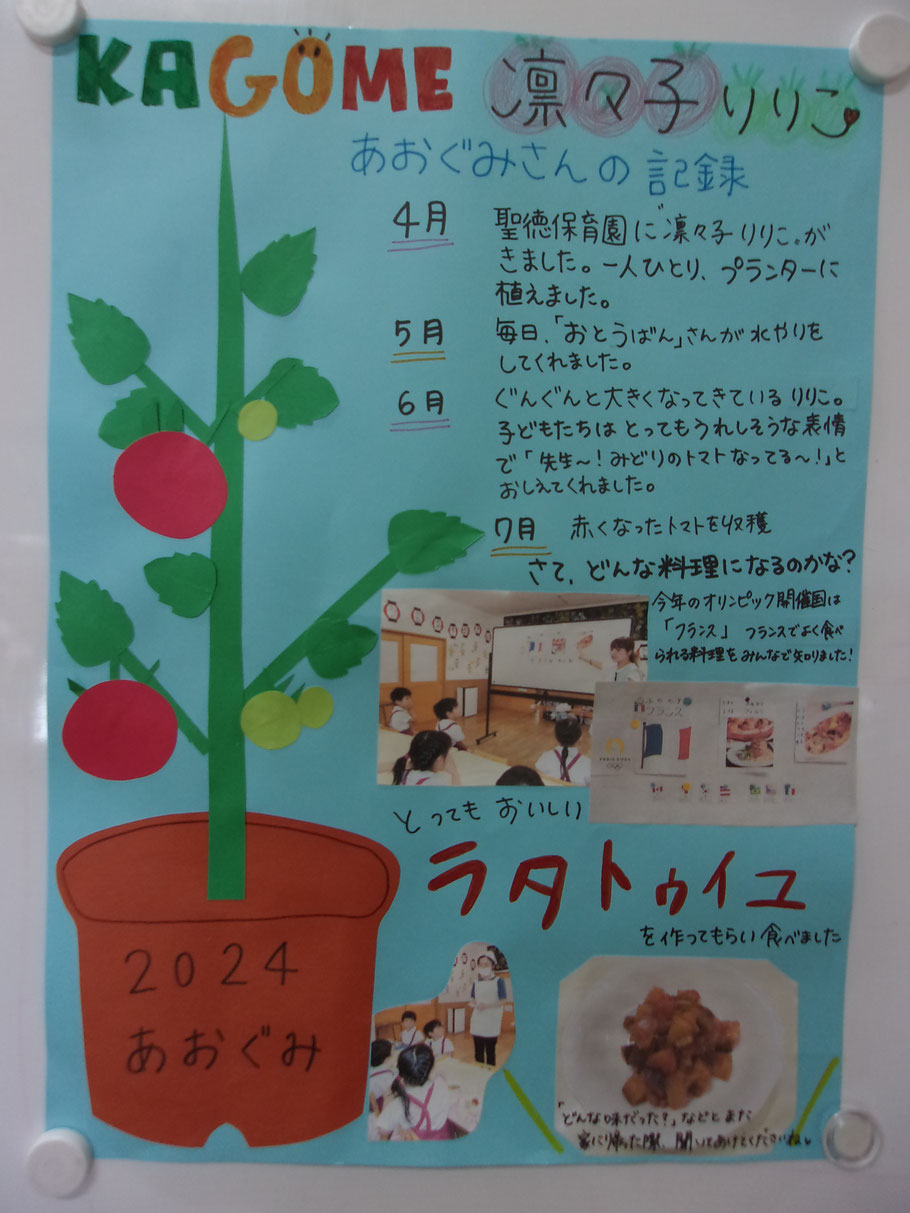 KAGOME 凛々子 りりこ
あおぐみさんの記録
4月
聖徳保育園に"凛々子りりこ"が
きました。一人ひとり、プランターに
植えました。
5月
毎日、「おとうばん」さんが水やりを
してくれました。
6月
ぐんぐんと大きくなってきているりりこ。
子どもたちはとってもうれしそうな表情
で「先生〜!みどりのトマトなってる〜!」と
おしえてくれました。
7月
赤くなったトマトを収穫
さて、どんな料理になるのかな?
今年のオリンピック開催国は
「フランス」 フランスでよく食べ
られる料理をみんなで知りました!
フランス
とってもおいしい
ラタトゥイユ
を作ってもらい食べました
2024
あおぐみ
「どんな味だった?」などとまた
家に帰った際、聞いてあげてくださいね